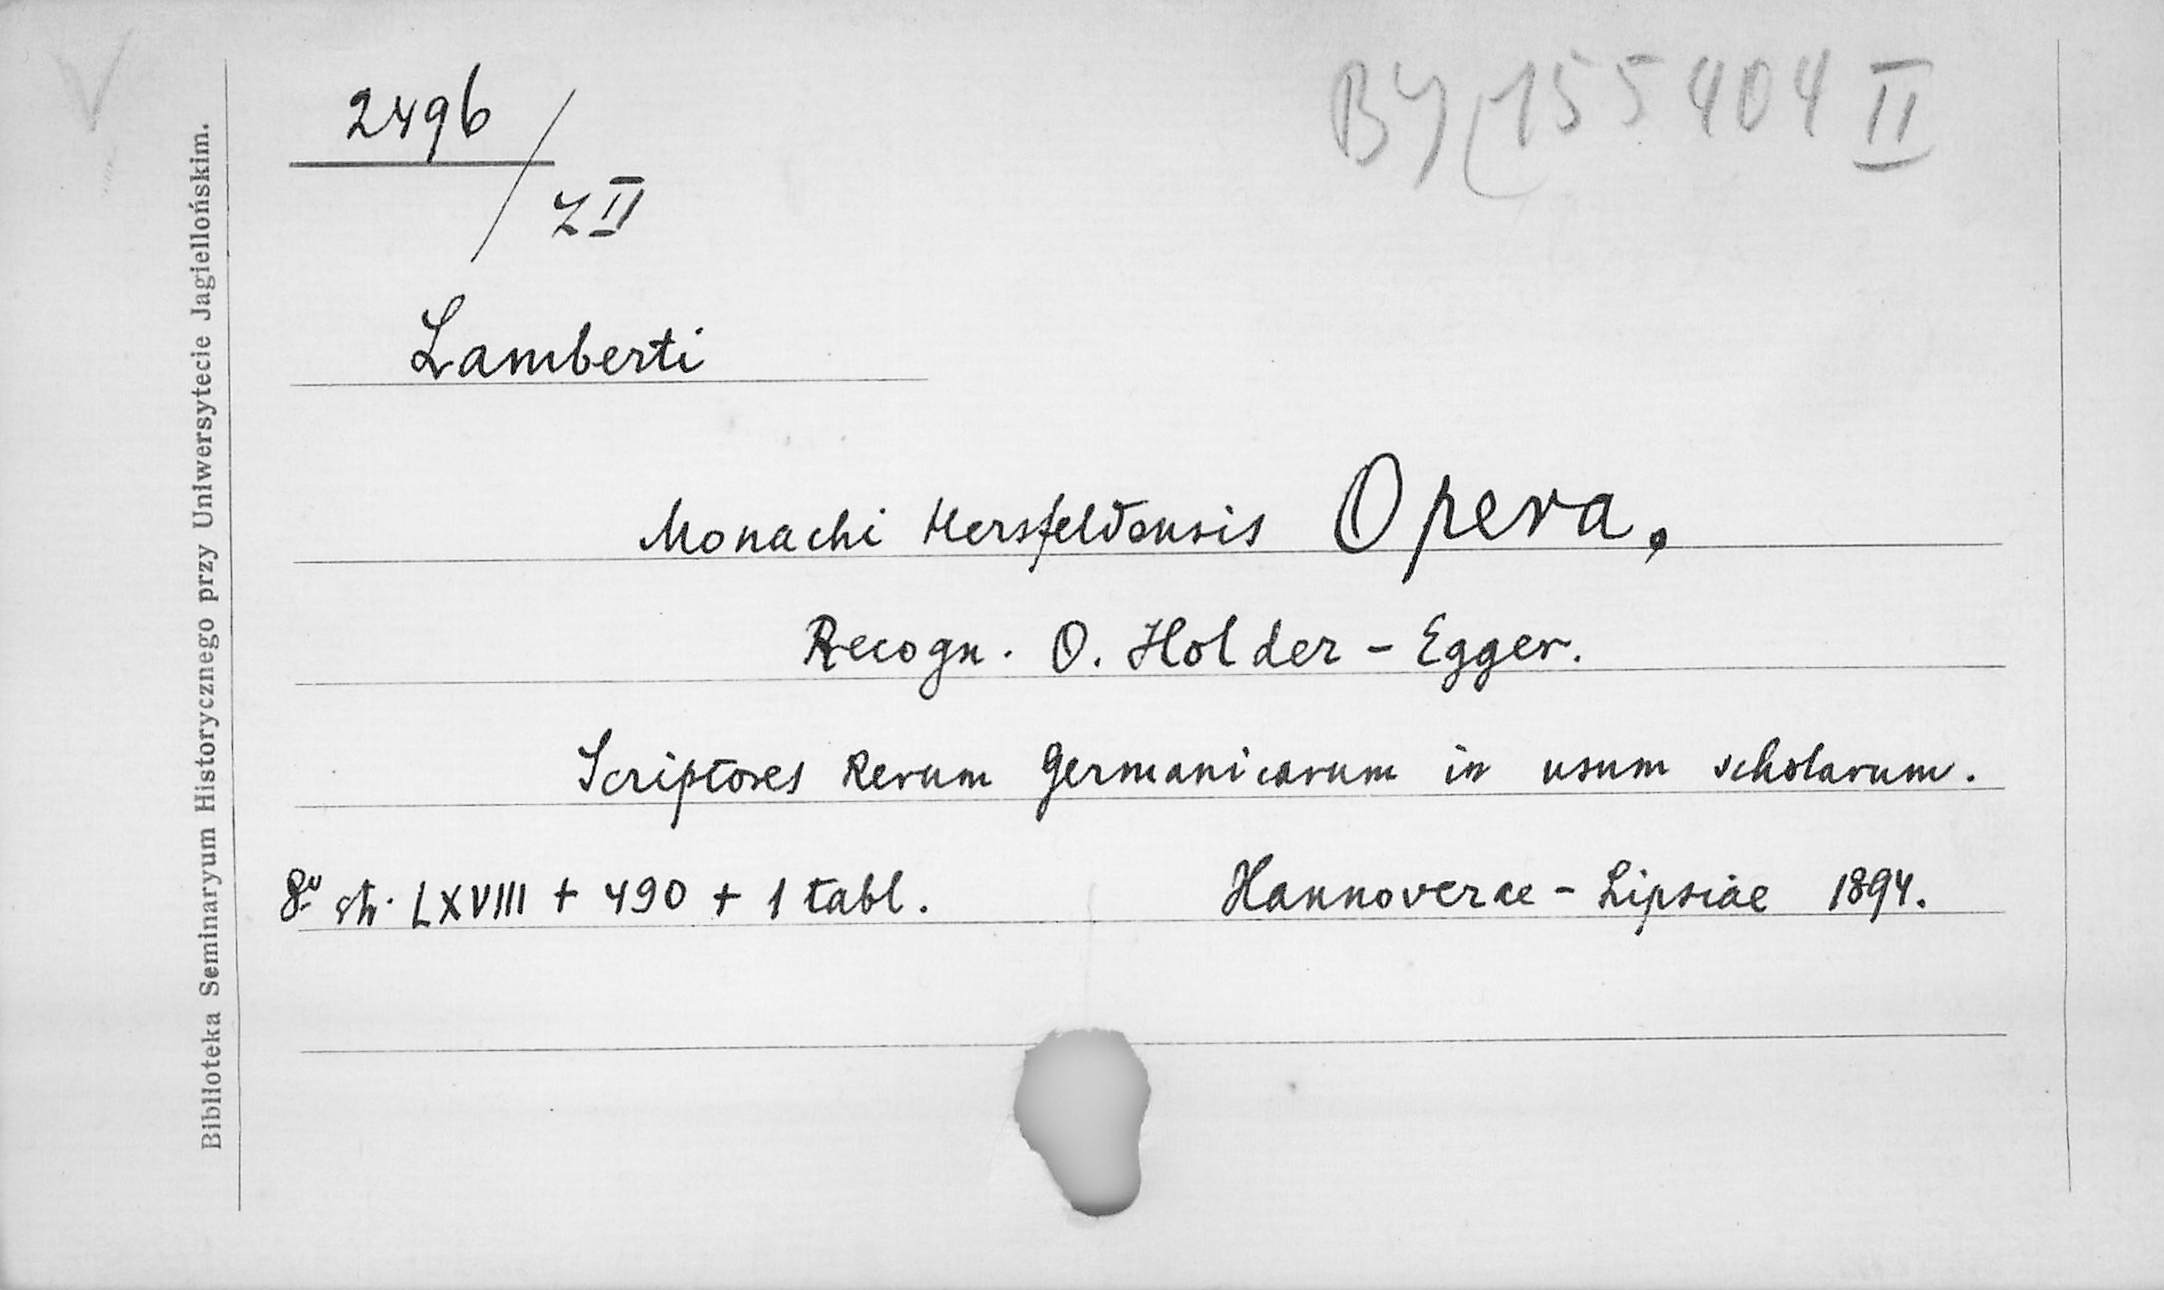 2496 / Z II
BJ 155404 II
Lamberti
Monachi Hersfeldensis Opera.
Recogn. O. Holder - Egger.
Scriptores Rerum Germanicarum in usum scholarum.
8º str. LXVIII + 490 + 1 tabl. Hannoverae - Lipsiae 1894.
Biblioteka Seminaryum Historycznego przy Uniwersytecie Jagiellońskim.